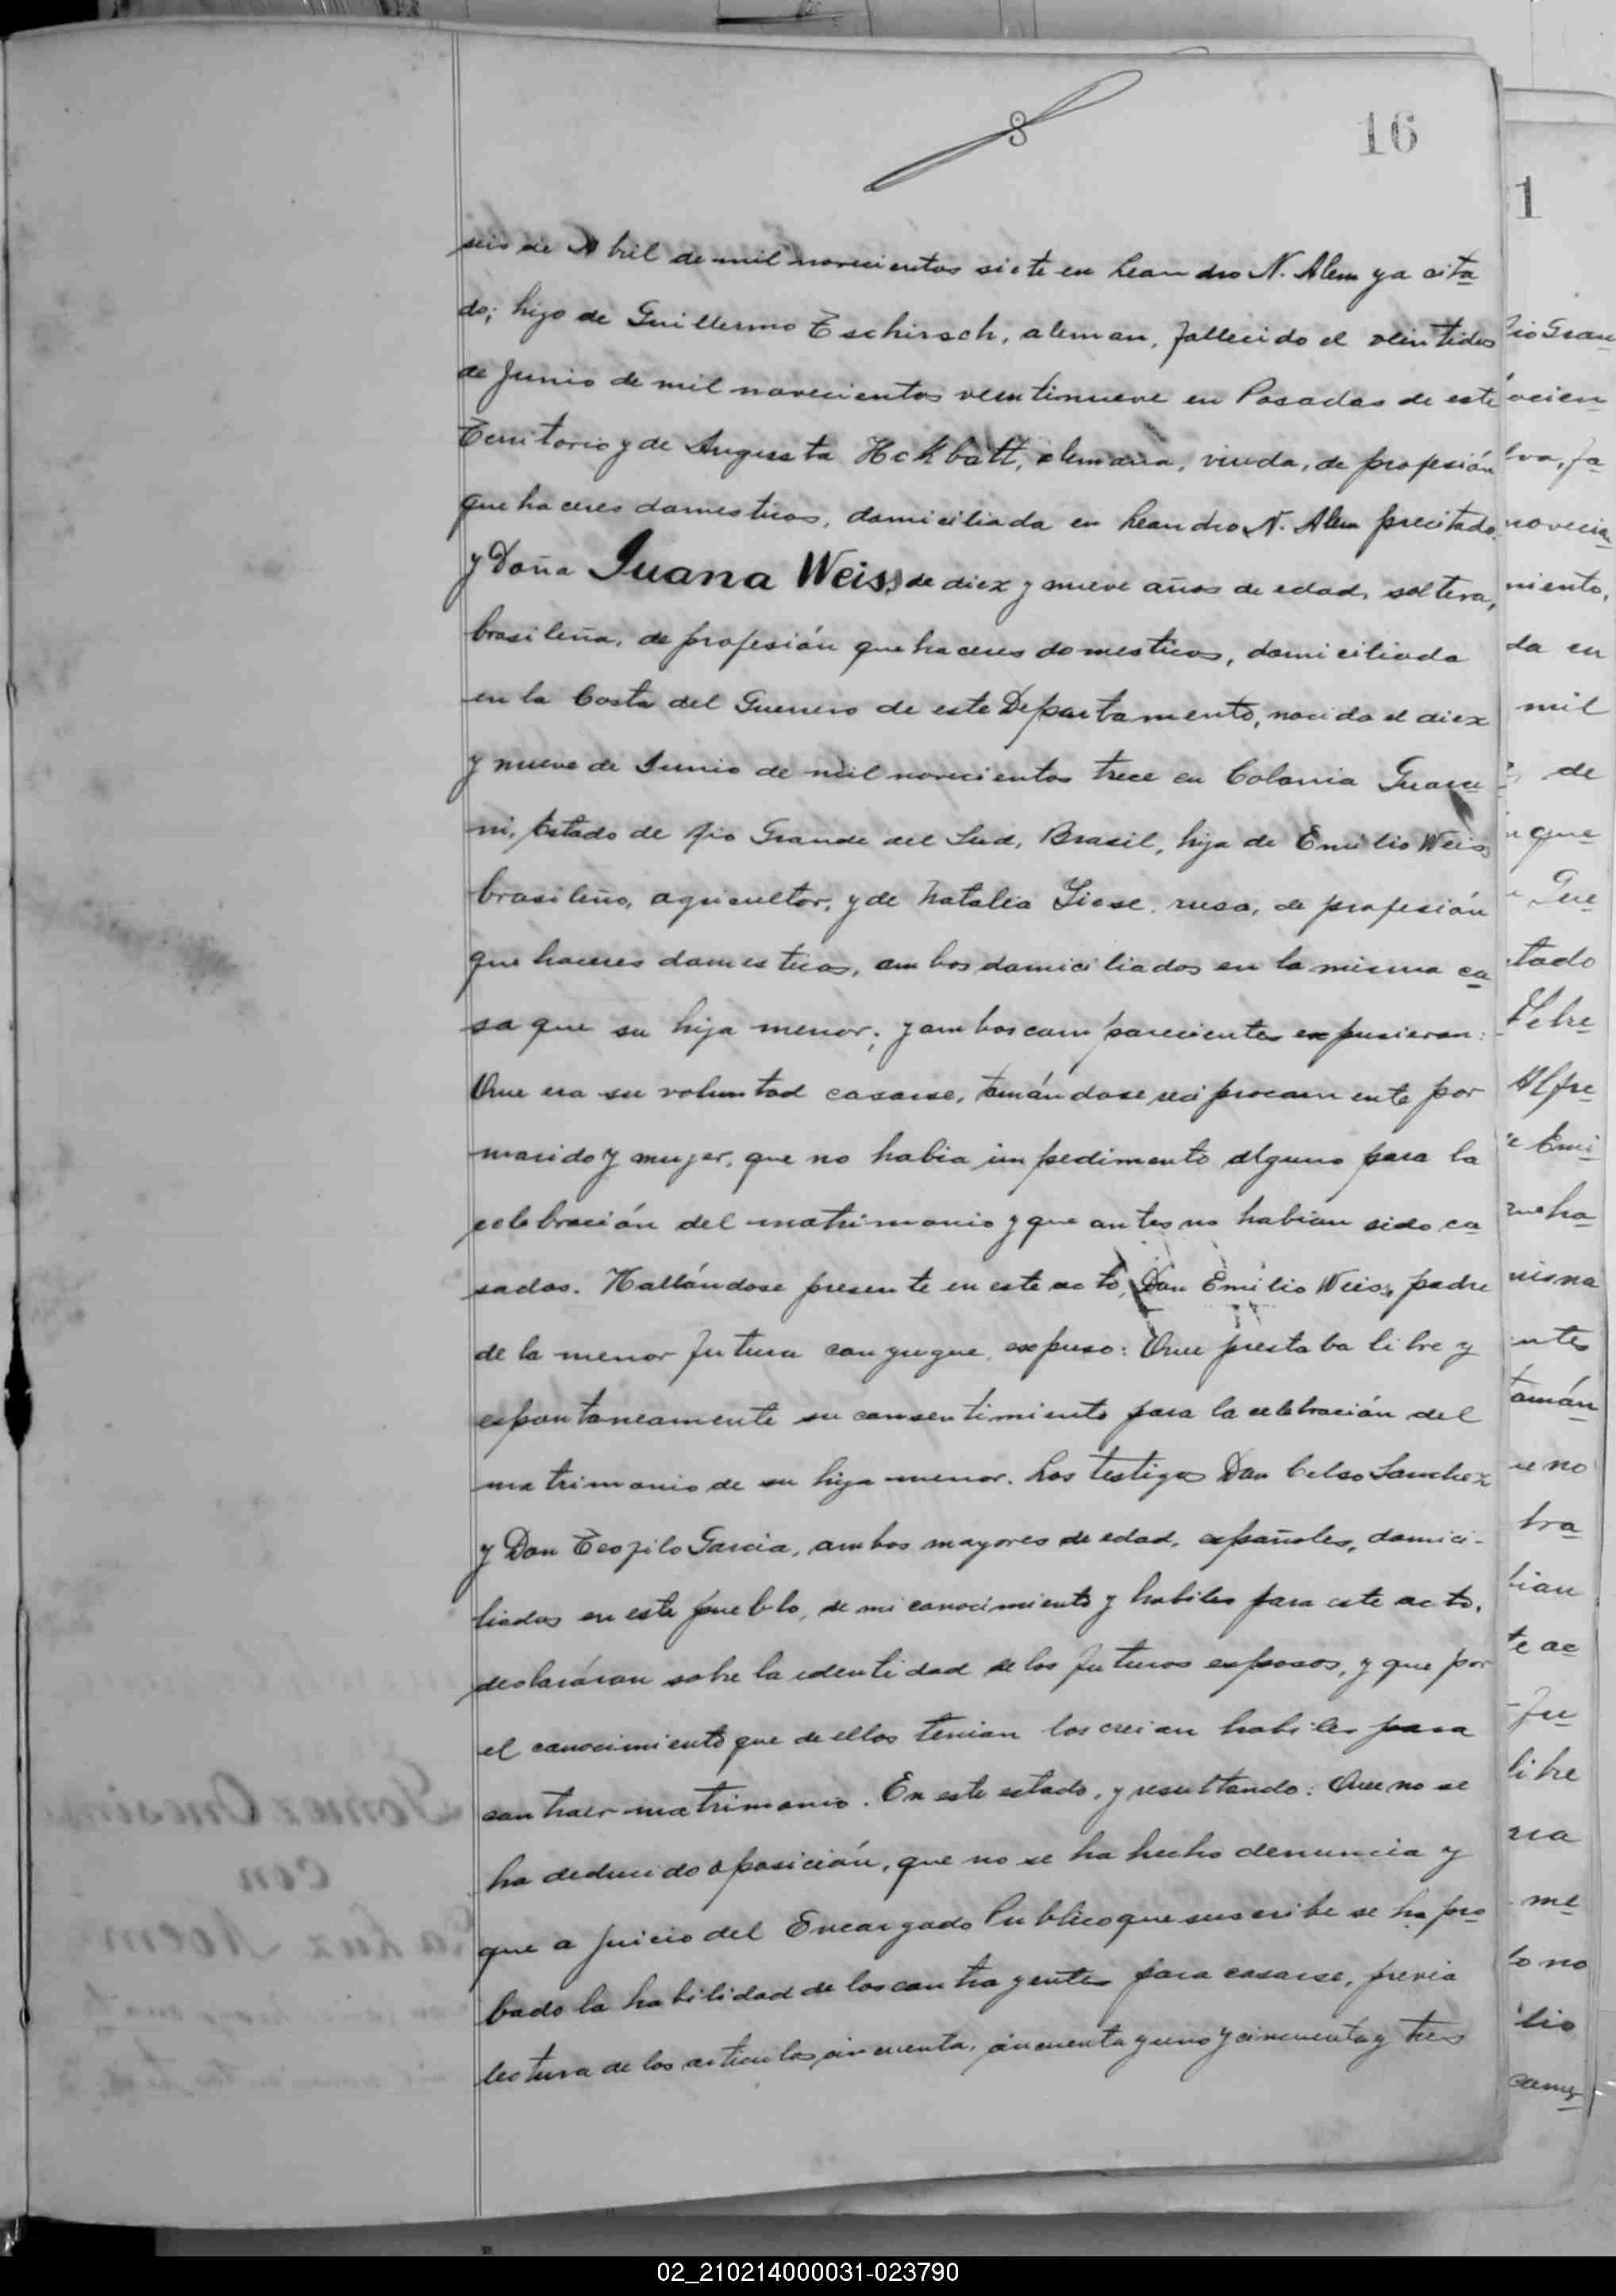 8
16
seis de Abril de mil novecientos siete en Leandro N. Alem ya cita
do; hijo de Guillermo Tschirsch, aleman, fallecido el veintidos
de Junio de mil novecientos veintinueve en Posadas de este
Territorio y de Augusta Hckbatt, alemana, viuda, de profesión
que haceres domesticos, domiciliada en Leandro N. Alem precitado
y Doña Juana Weiss, de diez y nueve años de edad, soltera,
brasileña, de profesión que haceres domesticos, domiciliada
en la Costa del Guerrero de este Departamento, nacida el diez
y nueve de Junio de mil novecientos trece en Colonia Guara
ni, Estado de Rio Grande del Sud, Brasil, hija de Emilio Weiss
brasileño, agricultor, y de Natalia Giese, rusa, de profesión
que haceres domesticos, ambos domiciliados en la misma ca
sa que su hija menor; y ambos comparecientes expusieron:
Que era su voluntad casarse, tomándose reciprocamente por
marido y mujer, que no habia impedimento alguno para la
celebración del matrimonio y que antes no habian sido ca
sados. Hallándose presente en este acto, Don Emilio Weiss, padre
de la menor futura conyugue, expuso: Que prestaba libre y
espontaneamente su consentimiento para la celebración del
matrimonio de su hija menor. Los testigos Don Celso Sanchez
y Don Teofilo Garcia, ambos mayores de edad, españoles, domici-
liados en este pueblo, de mi conocimiento y habiles para este acto,
declararon sobre la identidad de los futuros esposos, y que por
el conocimiento que de ellos tenian los creian habiles para
contraer matrimonio. En este estado, y resultando: Que no se
ha deducido oposición, que no se ha hecho denuncia y
que a juicio del Encargado Publico que suscribe se ha pro
bado la habilidad de los contrayentes para casarse, previa
lectura de los articulos cincuenta, cincuenta y uno y cincuenta y tres
1
rio Gran
ocien
novecien
miento,
da en
mil
de
que
Gue
tado
Febre
Alfre
Emi
que ha
misma
ntes
tomán
ue no
bian
te ac
fu
libre
me
to no
lio
02_210214000031-023790